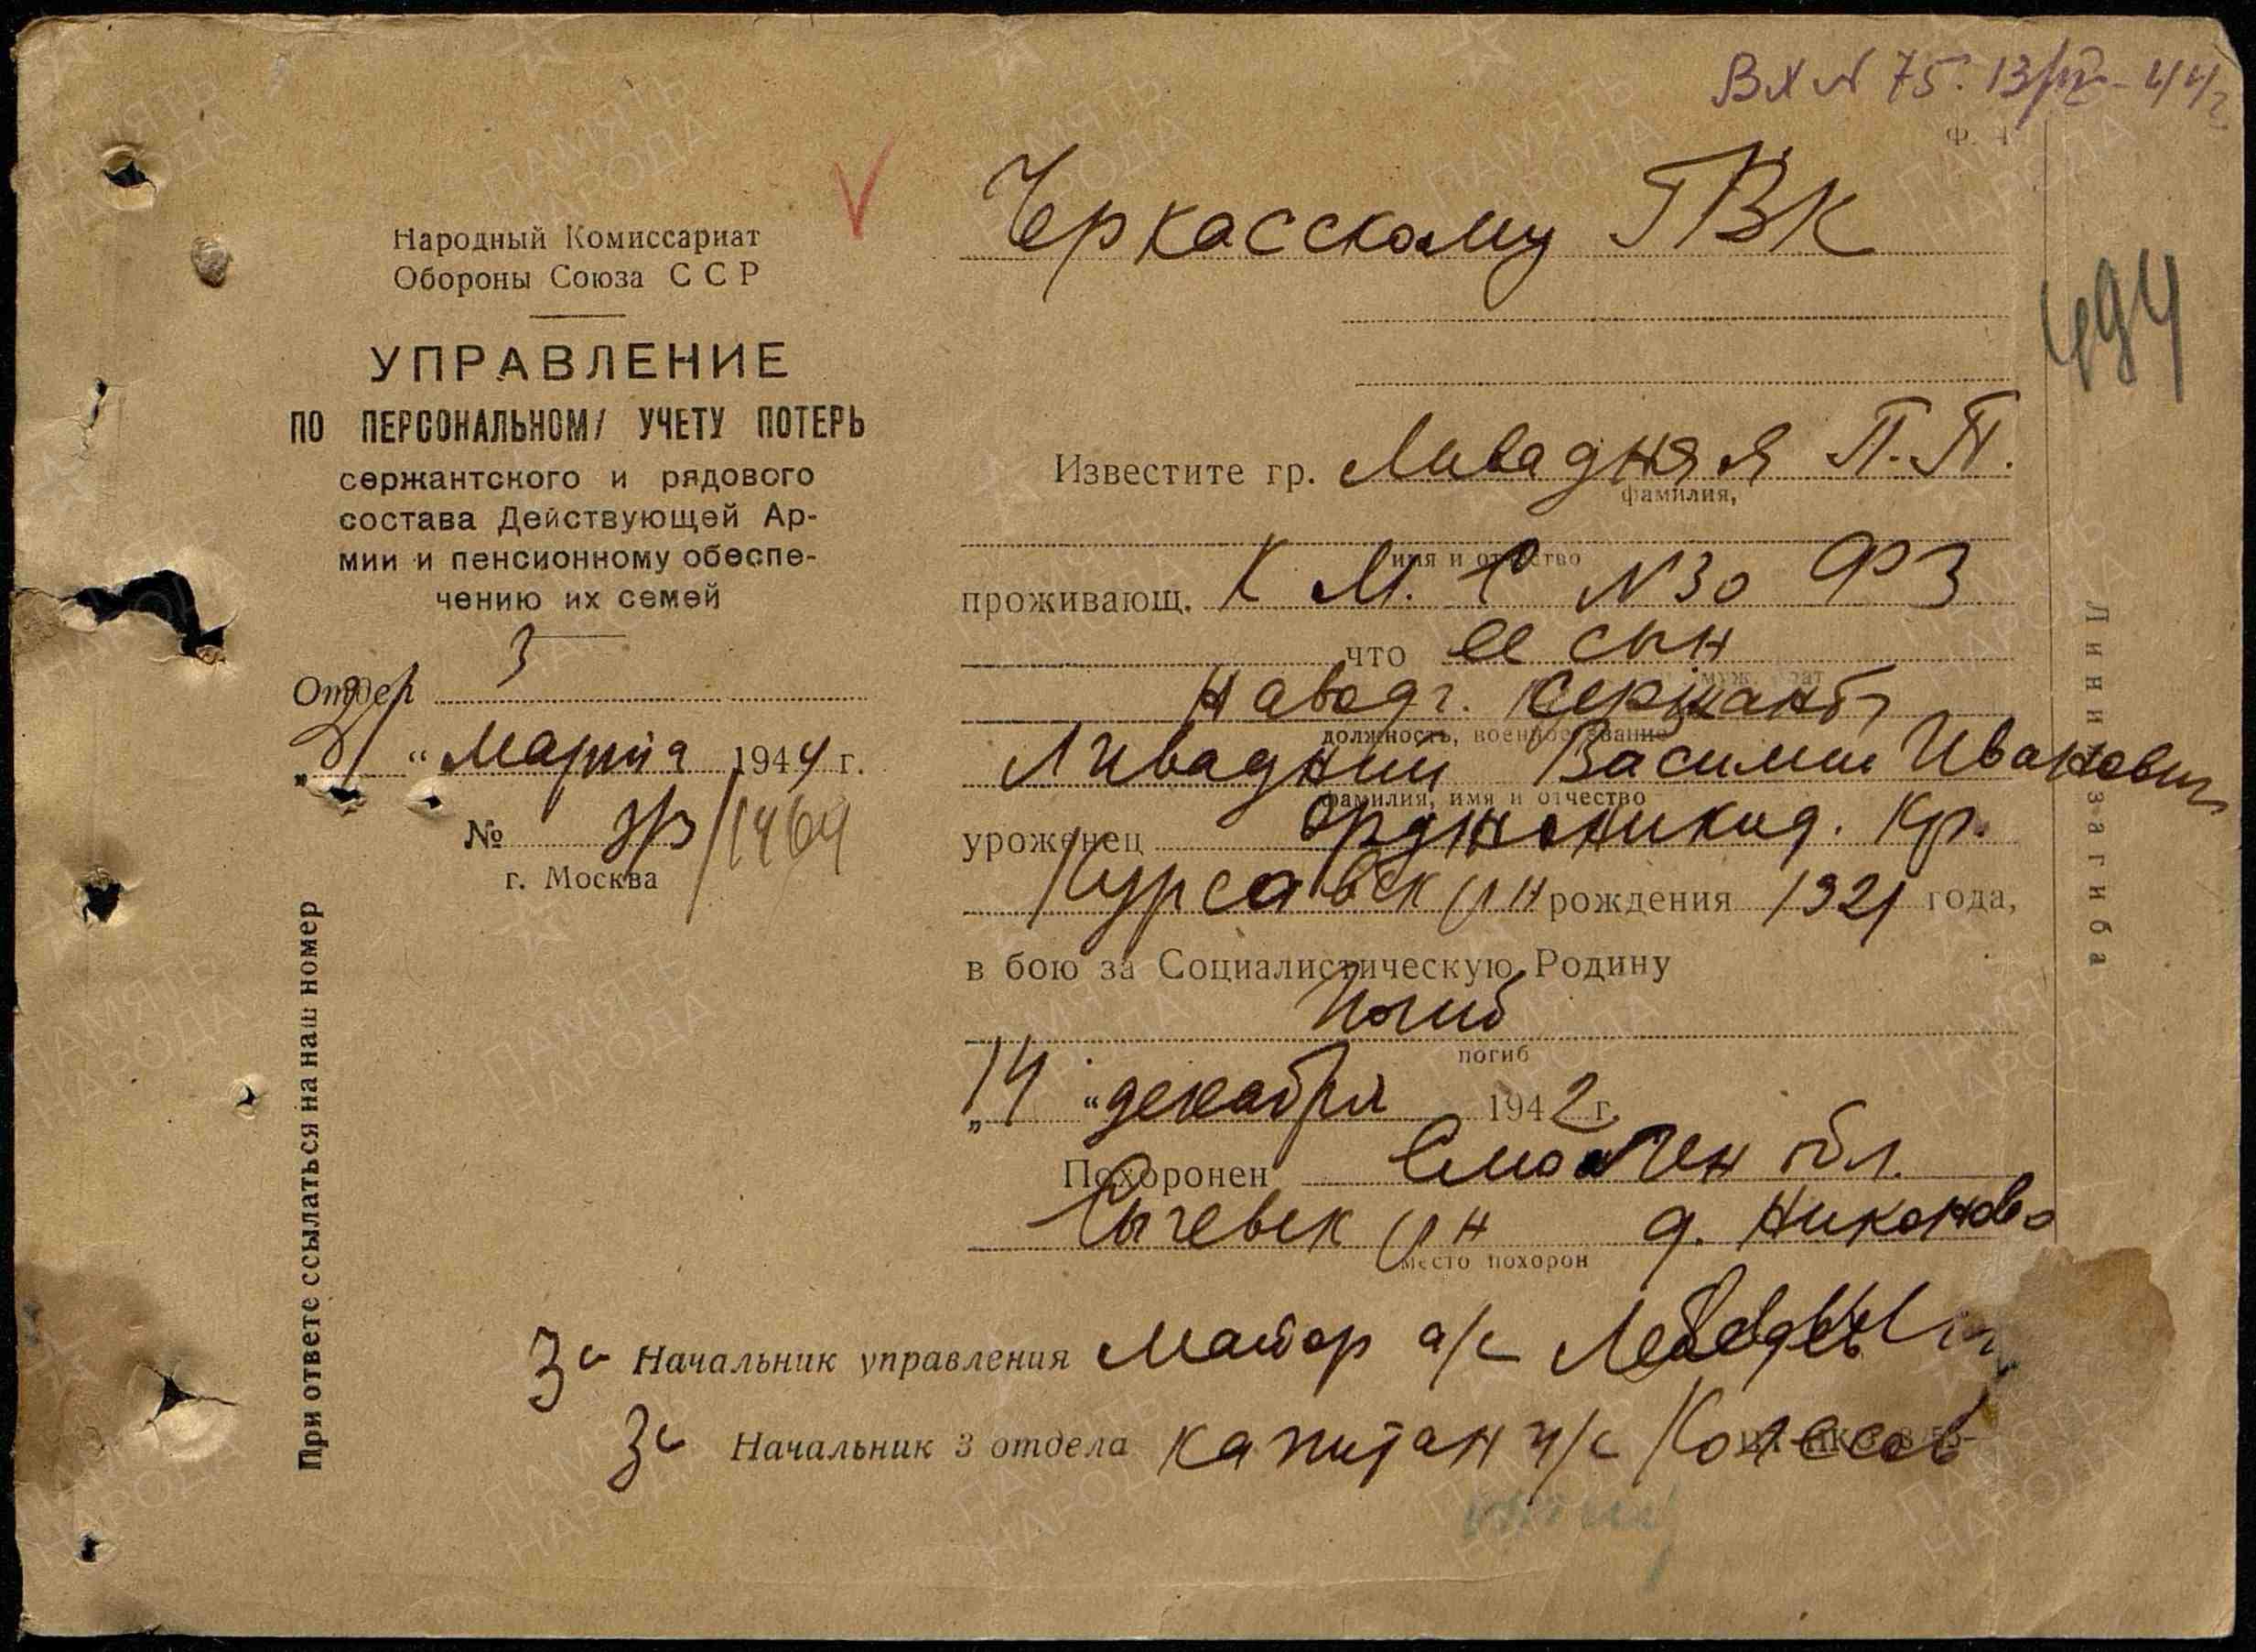 Вх N 75. 13/IV-44г
Ф. 4
Народный Комиссариат
Обороны Союза ССР
УПРАВЛЕНИЕ
ПО ПЕРСОНАЛЬНОМУ УЧЕТУ ПОТЕРЬ
сержантского и рядового
состава Действующей Ар-
мии и пенсионному обеспе-
чению их семей
Отдел 3
„ “ Марта 1944 г.
№ 3/3/1464
г. Москва
При ответе ссылаться на наш номер
Черкасскому ГВК
494
Известите гр. Ливадняя П.П.
фамилия,
имя и отчество
проживающ. К М. N 30 ФЗ
что ее сын
муж, брат
Наводч. Сержант
должность, военное звание
Ливадний Василий Иванович
фамилия, имя и отчество
уроженец Орджоникид. Кр.
Курсавск рн рождения 1921 года,
в бою за Социалистическую Родину
Погиб
погиб
„14 “ декабря 1942 г.
Похоронен Смолен обл.
Сычевск рн д. Никоново
место похорон
За Начальник управления майор а/с Лебедев
За Начальник 3 отдела капитан и/с Колесов
Линия загиба
ПАМЯТЬ
НАРОДА